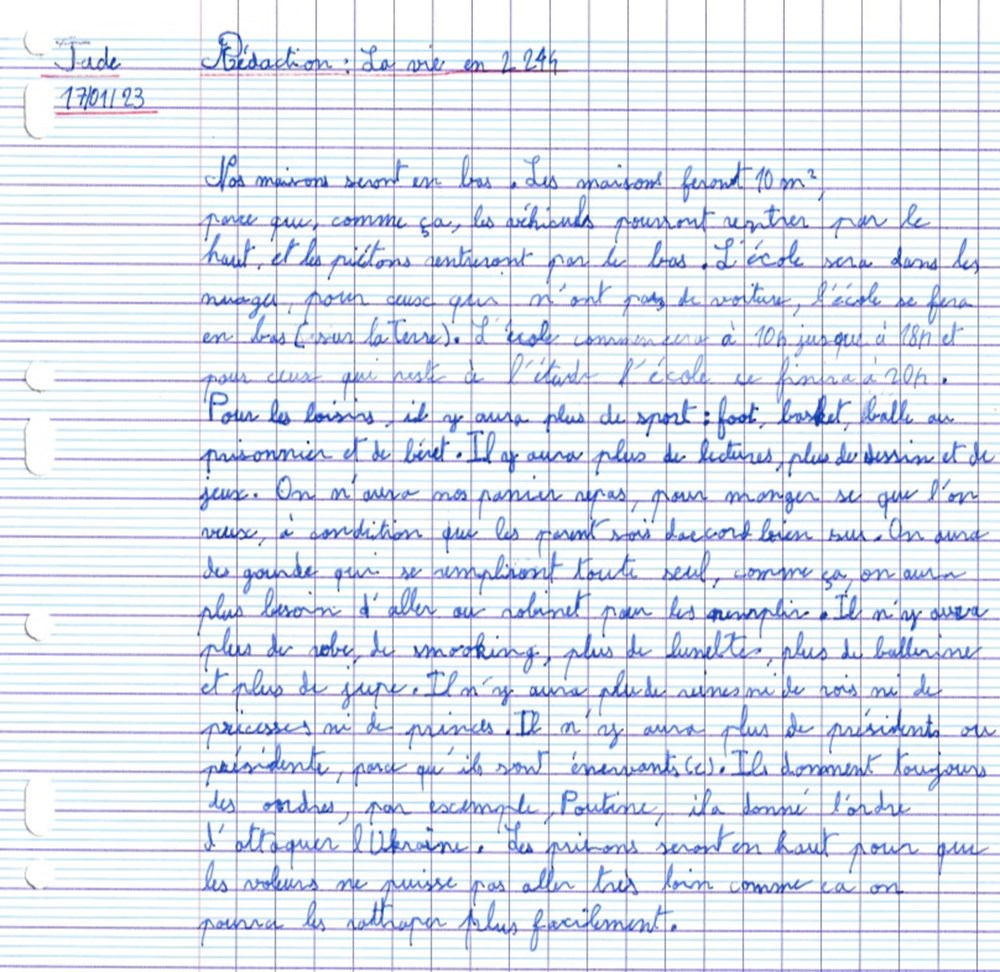 Jade Rédaction : La vie en 2 244
17/01/23
Nos maisons seront en bas . Les maisons feront 10 m²,
parce que, comme ça, les véhiculs pourront rentrer par le
haut, et les piétons rentreront par le bas . L'école sera dans les
nuages, pour ceux qui n'ont pas de voiture, l'école se fera
en bas (sur la Terre). L'école commencera à 10h jusque à 18h et
pour ceux qui reste à l'étude l'école se finira à 20h .
Pour les loisirs, il y aura plus de sport : foot, basket, balle au
prisonnier et de béret . Il y aura plus de lectures, plus de dessin et de
jeux . On n'aura nos panier repas, pour manger se que l'on
veux, à condition que les parent sois daccord bien sur . On aura
des gourde qui se rempliront toute seul, comme ça, on aura
plus besoin d'aller au robinet pour les remplir . Il n'y aura
plus de robe, de smooking, plus de lunettes, plus de ballerines
et plus de jupe . Il n'y aura plu de reines ni de rois ni de
pricesses ni de princes . Il n'y aura plus de présidents ou
présidente, parce qu'ils sont énervants(e). Ils donnent toujours
des ordres, par exemple, Poutine, ila donné l'ordre
d'attaquer l'Ukraine . Les prisons seront en haut pour que
les voleurs ne puisse pas aller très loin comme ca on
pourra les rattraper plus facilement .